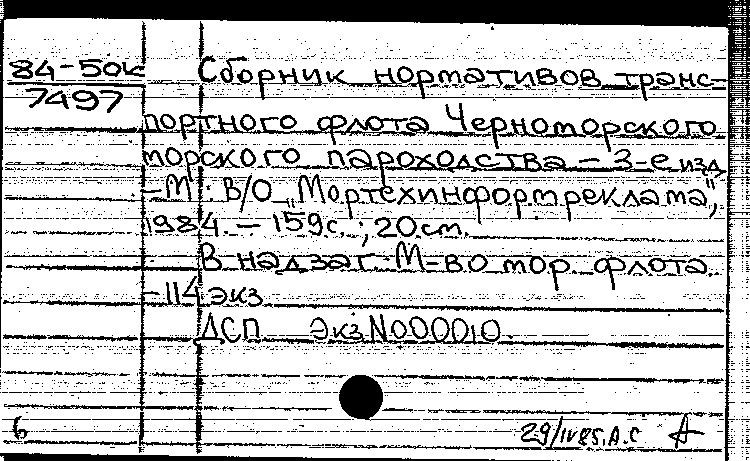 84-50к Сборник нормативов транс-
7497
портного флота Черноморского
морского пароходства - 3-е изд
-М : В/О „Мортехинформреклама",
1984. - 159с. ; 20см.
В надзаг: М-во мор. флота.
-114 экз
ДСП Экз N000010.
6
29/IV85. А.С А